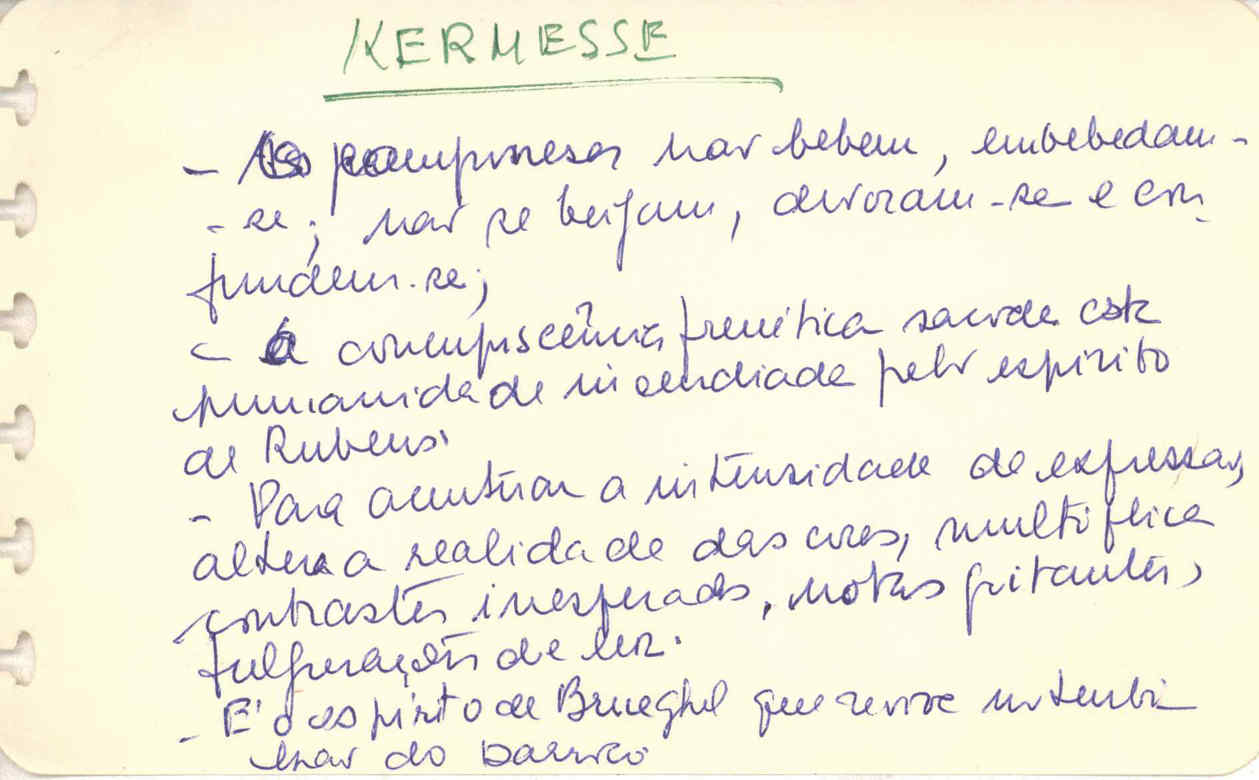 KERMESSE
- Os camponeses não bebem, embebedam-
-se; não se beijam, devoram-se e con
fundem-se;
- A concupiscência frenética sacode esta
humanidade incendiada pelo espírito
de Rubens.
- Para acentuar a intensidade de expressão,
altera a realidade das cores, multiplica
contrastes inesperados, notas gritantes,
fulgurações de luz.
- E' o espírito de Brueghel que revive no
do barroco